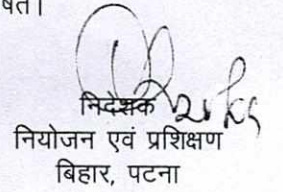 षित।
निदेशक
नियोजन एवं प्रशिक्षण
बिहार, पटना